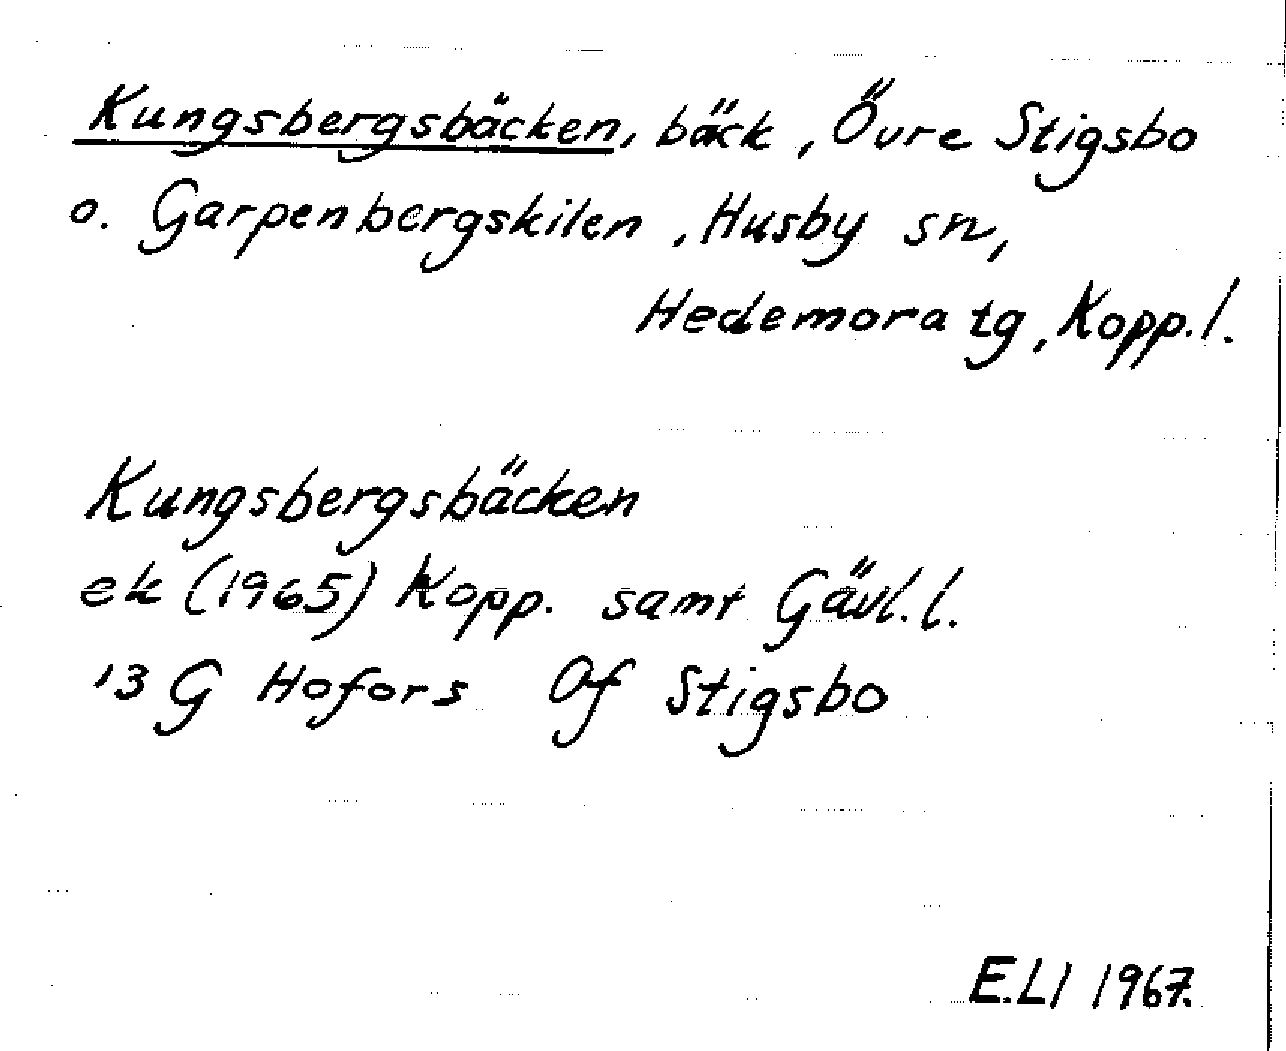 Kungsbergsbäcken, bäck, Övre Stigsbo
o. Garpenbergskilen, Husby sn,
Hedemora tg, Kopp. l.
Kungsbergsbäcken
ek (1965) Kopp. samt Gävl. l.
13 G Hofors 0f Stigsbo
E.LI 1967.